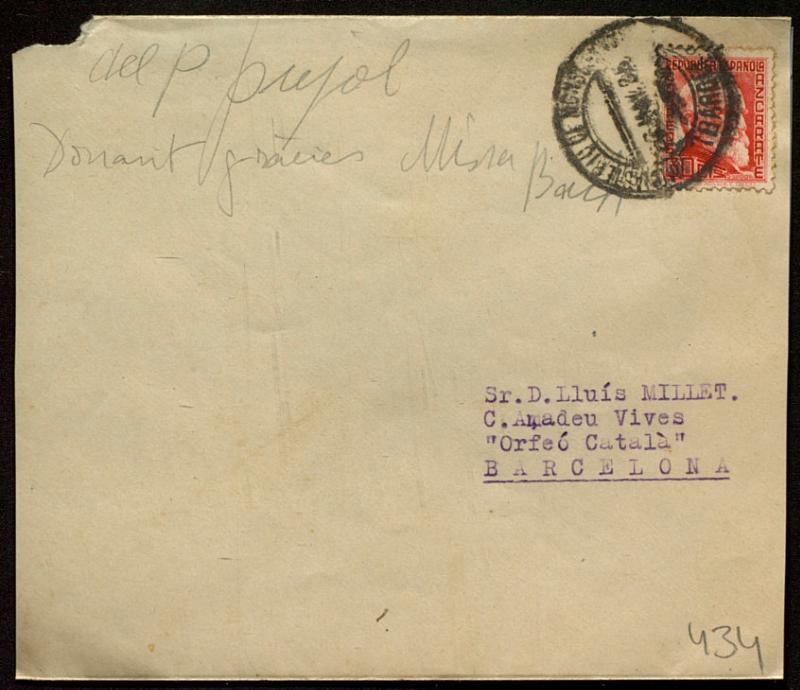 del P Pujol
Donant gràcies Missa
Bach
REPUBLICA ESPAÑOLA
AZCARATE
30 CTS
Sr.D.Lluís MILLET.
C.Amadeu Vives
"Orfeó Català"
BARCELONA
434